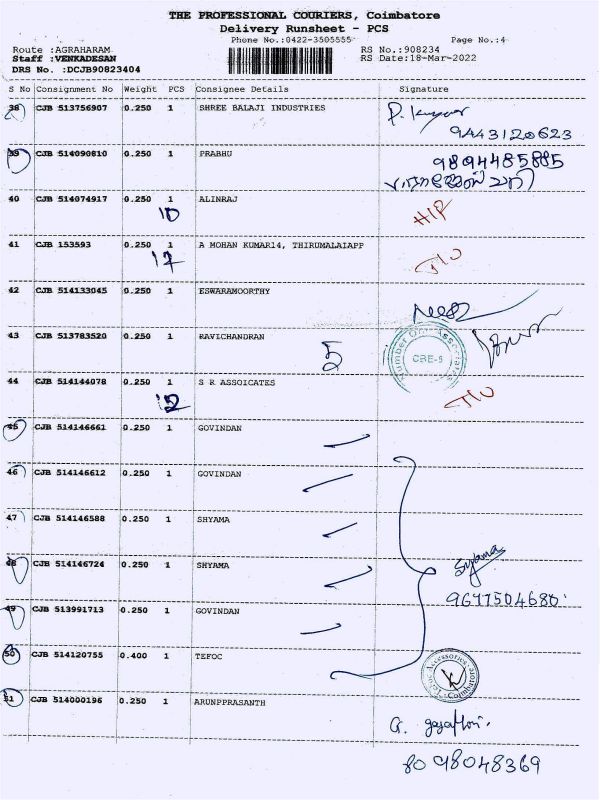 THE PROFESSIONAL COURIERS, Coimbatore
Delivery Runsheet - PCS
Phone No.:0422-3505555 Page No.:4
Route :AGRAHARAM RS No.:908234
Staff :VENKADESAN RS Date:18-Mar-2022
DRS No. :DCJB90823404
S No Consignment No Weight PCS Consignee Details Signature
38 CJB 513756907 0.250 1 SHREE BALAJI INDUSTRIES P. Kumar
9443120623
39 CJB 514090810 0.250 1 PRABHU 9894485885
40 CJB 514074917 0.250 1 ALINRAJ
10 H/P
41 CJB 153593 0.250 1 A MOHAN KUMAR14, THIRUMALAIAPP
17 T/O
42 CJB 514133045 0.250 1 ESWARAMOORTHY
43 CJB 513783520 0.250 1 RAVICHANDRAN
5 Number One Associates CBE-5
44 CJB 514144078 0.250 1 S R ASSOICATES
12 T/O
45 CJB 514146661 0.250 1 GOVINDAN
46 CJB 514146612 0.250 1 GOVINDAN
47 CJB 514146588 0.250 1 SHYAMA
48 CJB 514146724 0.250 1 SHYAMA Syama
9677504680
49 CJB 513991713 0.250 1 GOVINDAN
50 CJB 514120755 0.400 1 TEFOC
Tefoc Accessories Coimbatore
51 CJB 514000196 0.250 1 ARUNPPRASANTH
G. gayathri.
8098048369